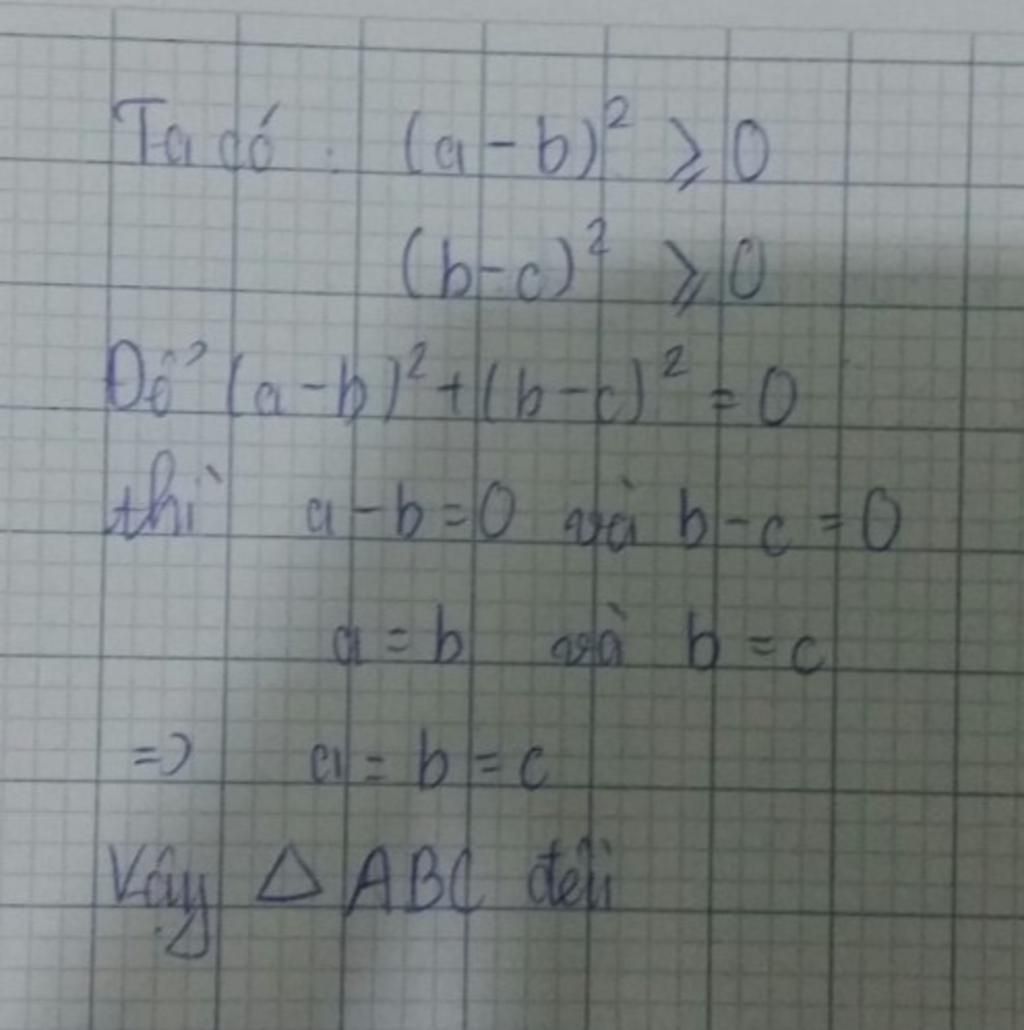 Ta có : (a - b)² ≥ 0
(b - c)² ≥ 0
Để (a - b)² + (b - c)² = 0
thì a - b = 0 và b - c = 0
a = b và b = c
=> a = b = c
Vậy △ ABC đều